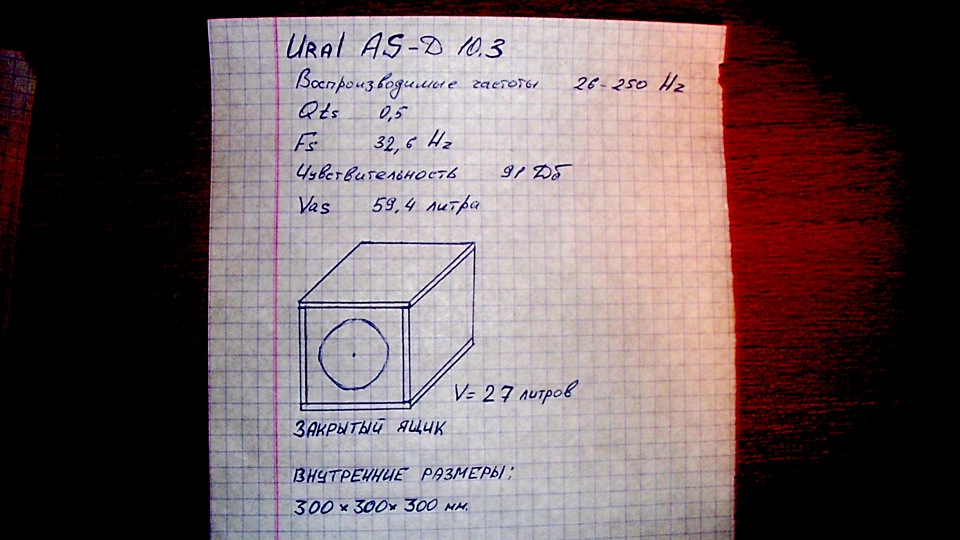 Ural AS-D 10.3
Воспроизводимые частоты 26-250 Hz
Qts 0,5
Fs 32,6 Hz
Чувствительность 91 Дб
Vas 59,4 литра
V= 27 литров
ЗАКРЫТЫЙ ЯЩИК
ВНУТРЕННИЕ РАЗМЕРЫ:
300 × 300 × 300 мм.